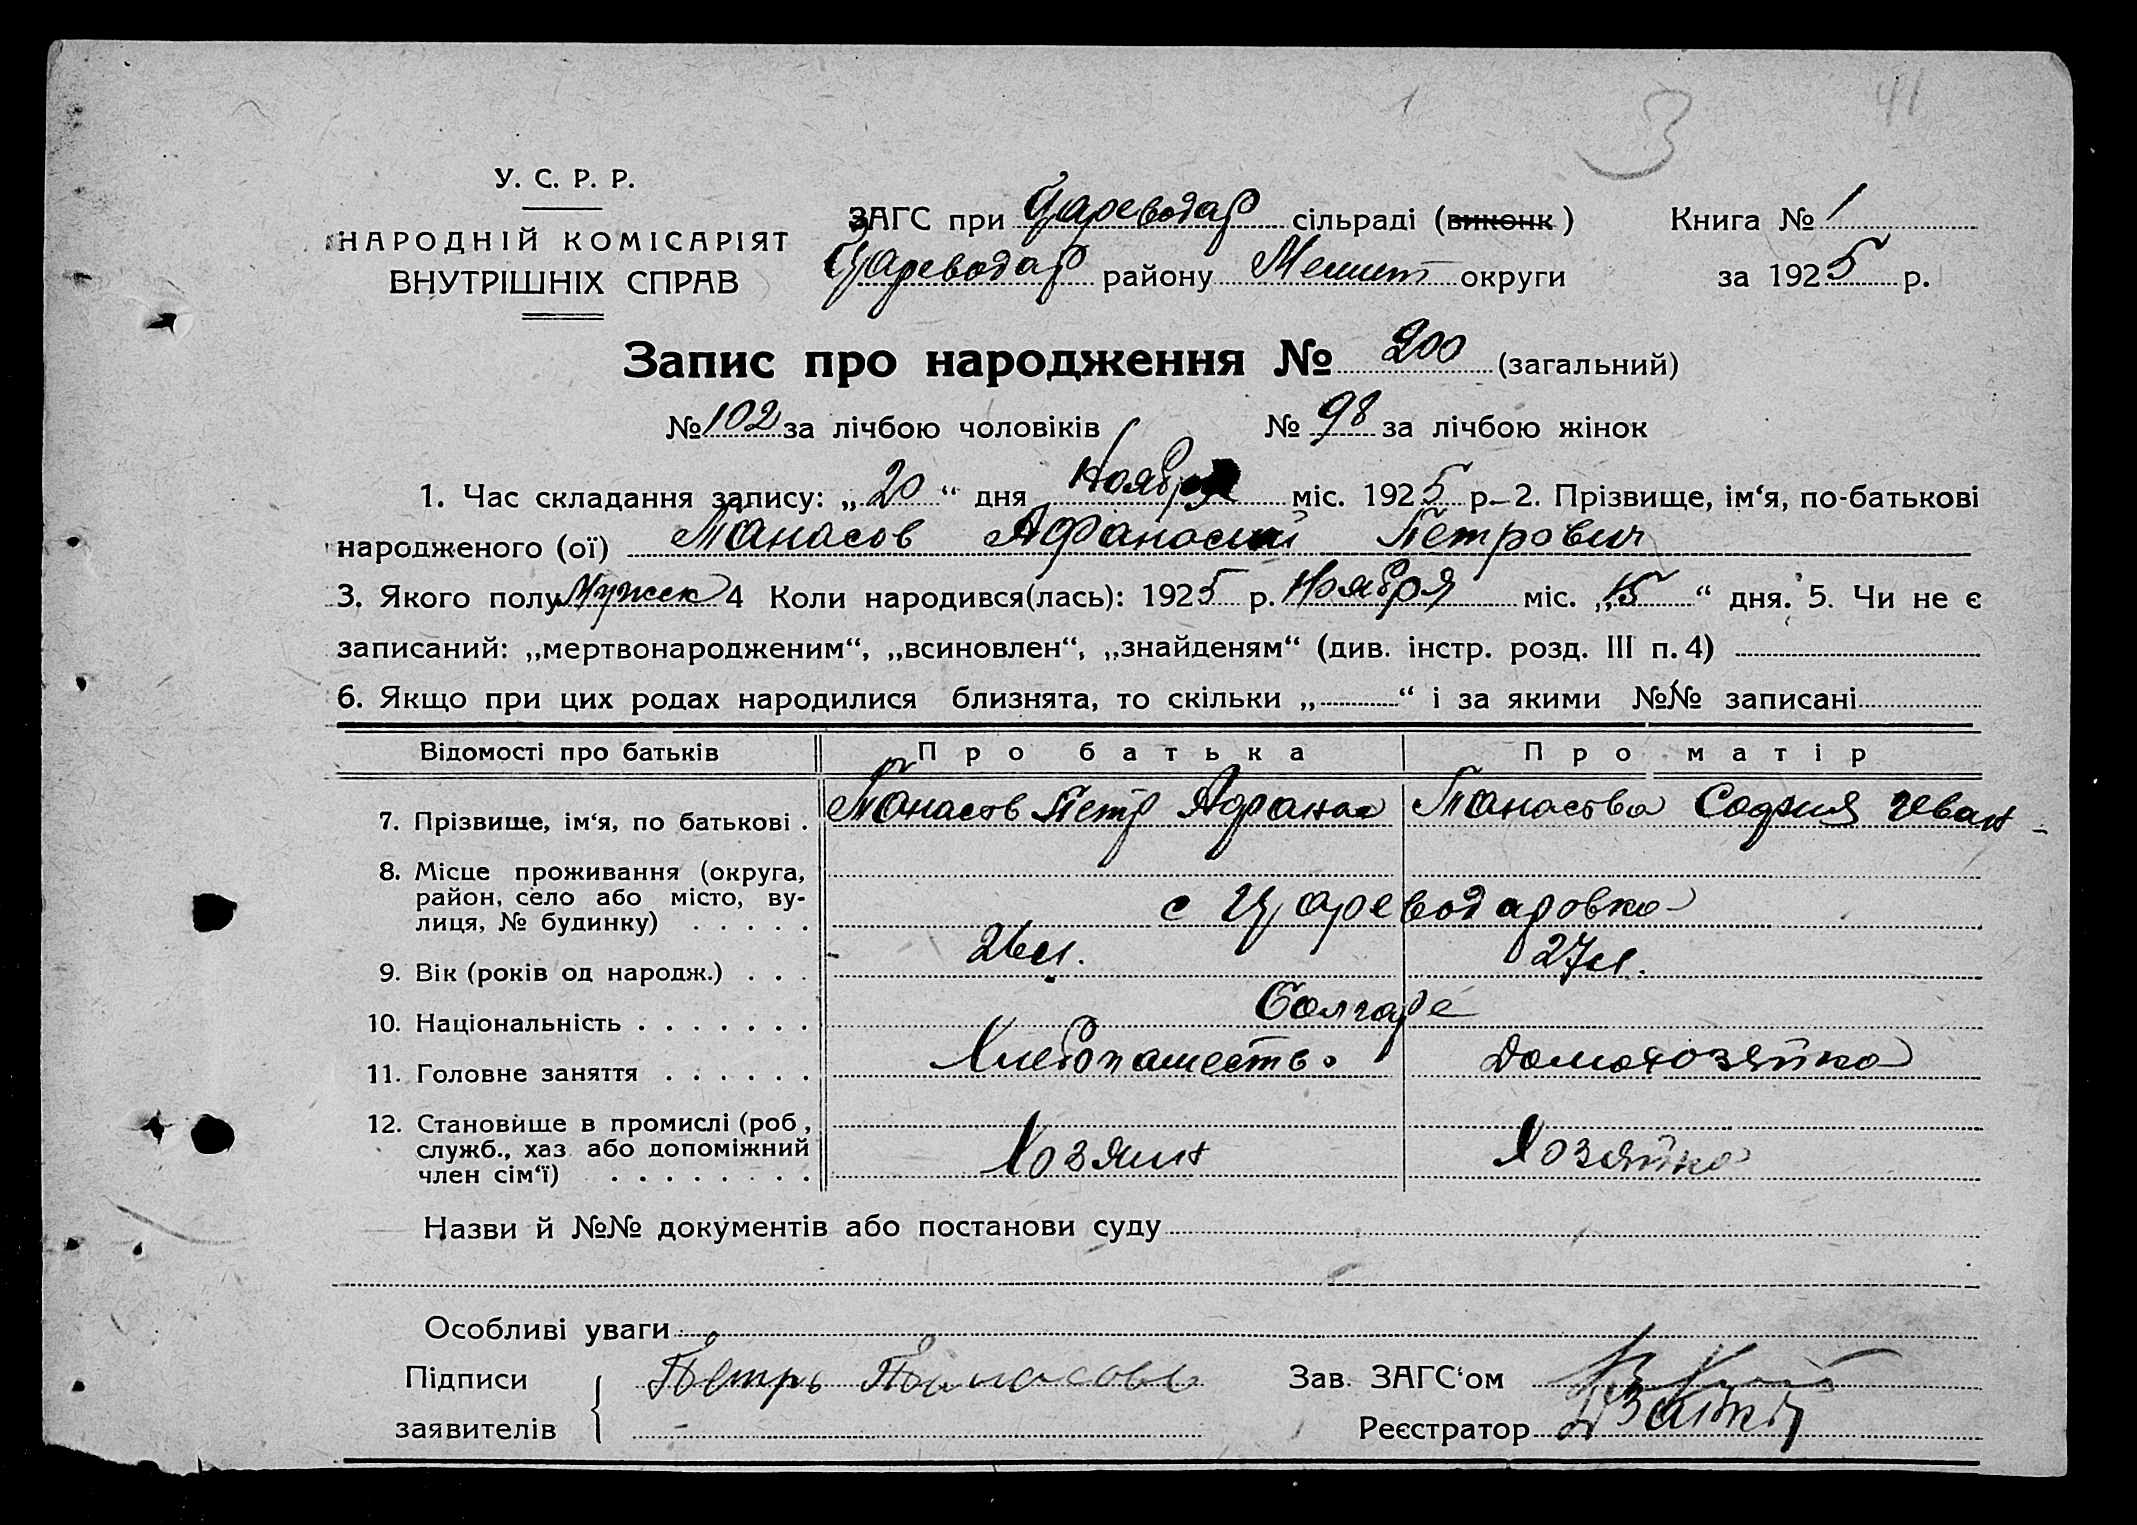 3 41
У. С. Р. Р.
НАРОДНІЙ КОМІСАРІЯТ
ВНУТРІШНІХ СПРАВ
ЗАГС при Цареводар сільраді (виконк) Книга № 1
Цареводар району Мелит округи за 1925 р.
Запис про народження № 200 (загальний)
№ 102 за лічбою чоловіків № 98 за лічбою жінок
1. Час складання запису: „20“ дня Ноября міс. 1925 р. 2. Прізвище, ім‘я, по-батькові
народженого (ої) Танасов Афанасий Петрович
3. Якого полу Мужск 4 Коли народився(лась): 1925 р. Ноября міс. „15“ дня. 5. Чи не є
записаний: „мертвонародженим“, „всиновлен“, „знайденям“ (див. інстр. розд. III п. 4)
6. Якщо при цих родах народилися близнята, то скільки „ “ і за якими №№ записані
Відомості про батьків Про батька Про матір
7. Прізвище, ім‘я, по батькові . Танасов Петр Афанас Танасова София Иван
8. Місце проживання (округа,
район, село або місто, ву-
лиця, № будинку) . . . . . с Цареводаровка
9. Вік (років од народж.) . . . 26 л. 27 л.
10. Національність . . . . . . . Болгаре
11. Головне заняття . . . . . . Хлебопашество Домохозяйка
12. Становище в промислі (роб,
служб., хаз або допоміжний
член сім‘ї) . . . . . . . . Хозяин Хозяйка
Назви й №№ документів або постанови суду
Особливі уваги
Підписи Петръ Танасовъ Зав. ЗАГС‘ом
заявителів Реєстратор